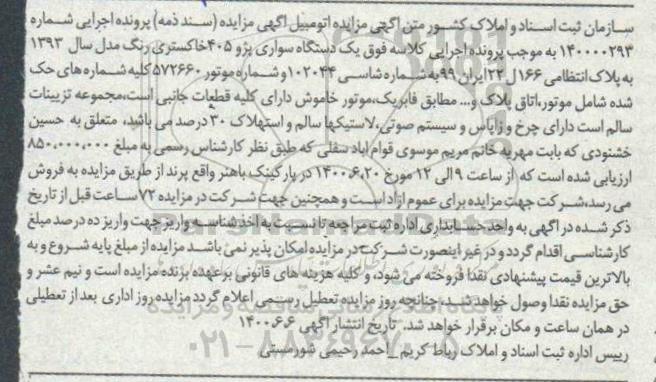 سازمان ثبت اسناد و املاک کشور متن آگهی مزایده اتومبیل اگهی مزایده (سند ذمه) پرونده اجرایی شماره
۱۴۰۰۰۰۲۹۳ به موجب پرونده اجرایی کلاسه فوق یک دستگاه سواری پژو ۴۰۵ خاکستری رنگ مدل سال ۱۳۹۳
به پلاک انتظامی ۱۶۶ل۲۴ ایران ۹۹ به شماره شاسی ۱۰۲۰۴۴ و شماره موتور ۵۷۲۶۶۰ کلیه شماره های حک
شده شامل موتور،اتاق پلاک و... مطابق فابریک،موتور خاموش دارای کلیه قطعات جانبی است،مجموعه تزیینات
سالم است دارای چرخ و زاپاس و سیستم صوتی،لاستیکها سالم و استهلاک ۳۰ درصد می باشد، متعلق به حسین
خشنودی که بابت مهریه خانم مریم موسوی قوام اباد سفلی که طبق نظر کارشناس رسمی به مبلغ ۸۵۰,۰۰۰,۰۰۰
ارزیابی شده است که از ساعت ۹ الی ۱۲ مورخ ۱۴۰۰،۶،۲۰ در پارکینگ باهنر واقع پرند از طریق مزایده به فروش
می رسد،شرکت جهت مزایده برای عموم ازاد است و همچنین جهت شرکت در مزایده ۷۲ ساعت قبل از تاریخ
ذکر شده در اگهی به واحد حسابداری اداره ثبت مراجعه تا نسبت به اخذ شناسه واریز جهت واریز ده درصد مبلغ
کارشناسی اقدام گردد و در غیر اینصورت شرکت در مزایده امکان پذیر نمی باشد مزایده از مبلغ پایه شروع و به
بالاترین قیمت پیشنهادی نقدا فروخته می شود، و کلیه هزینه های قانونی برعهده برنده مزایده است و نیم عشر و
حق مزایده نقدا وصول خواهد شد، چنانچه روز مزایده تعطیل رسمی اعلام گردد مزایده روز اداری بعد از تعطیلی
در همان ساعت و مکان برقرار خواهد شد. تاریخ انتشار اگهی ۱۴۰۰،۶،۶
رییس اداره ثبت اسناد و املاک رباط کریم _احمد رحیمی شورمستی
۰۲۱-۸۸۳۴۹۶۷۰